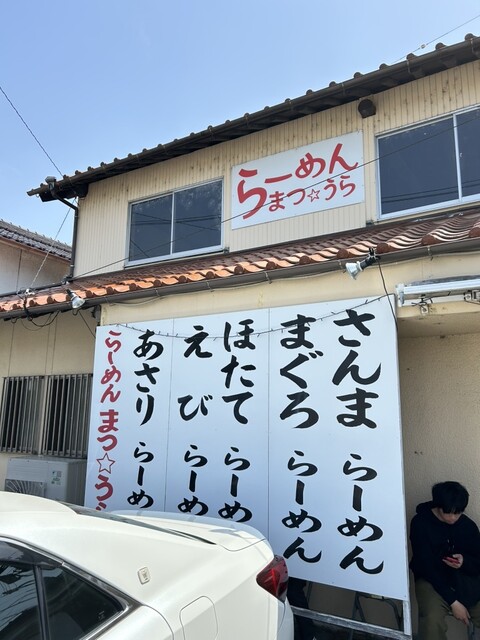 らーめん
まつ☆うら
さんま らーめん
まぐろ らーめん
ほたて らーめ
えび らーめ
あさり らーめ
らーめん まつ☆うら